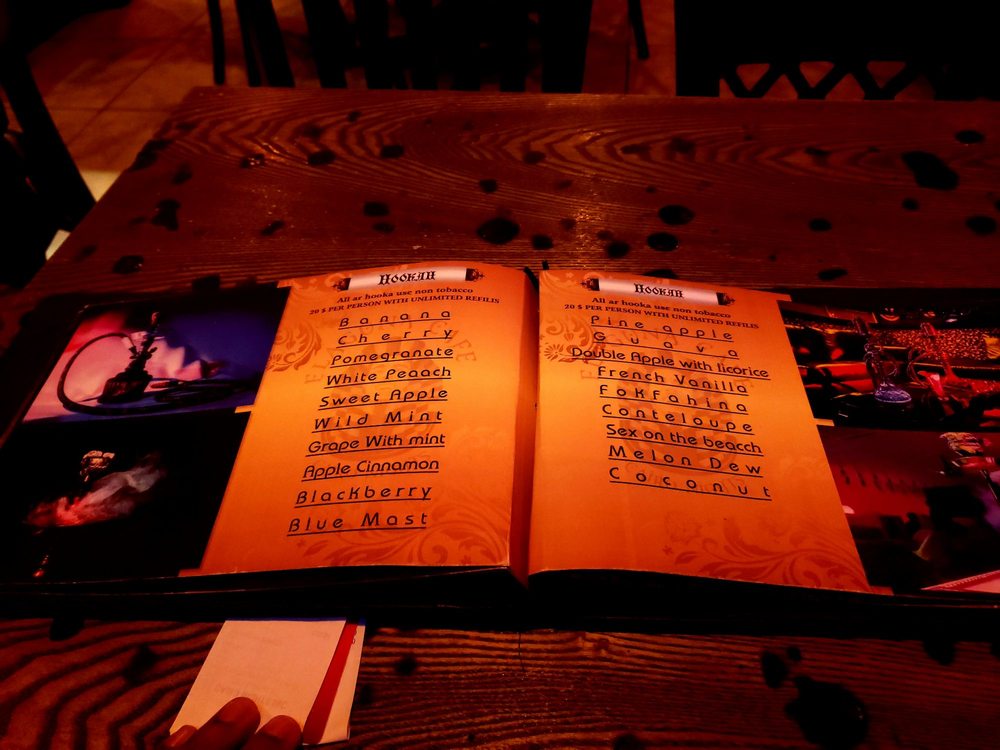 HOOKAH
All ar hooka use non tobacco
20 $ PER PERSON WITH UNLIMITED REFILIS
Banana
Cherry
Pomegranate
White Peaach
Sweet Apple
Wild Mint
Grape With mint
Apple Cinnamon
Blackberry
Blue Mast
HOOKAH
All ar hooka use non tobacco
20 $ PER PERSON WITH UNLIMITED REFILIS
Pine apple
Guava
Double Apple with licorice
French Vanilla
Fokfahina
Conteloupe
Sex on the beacch
Melon Dew
Coconut